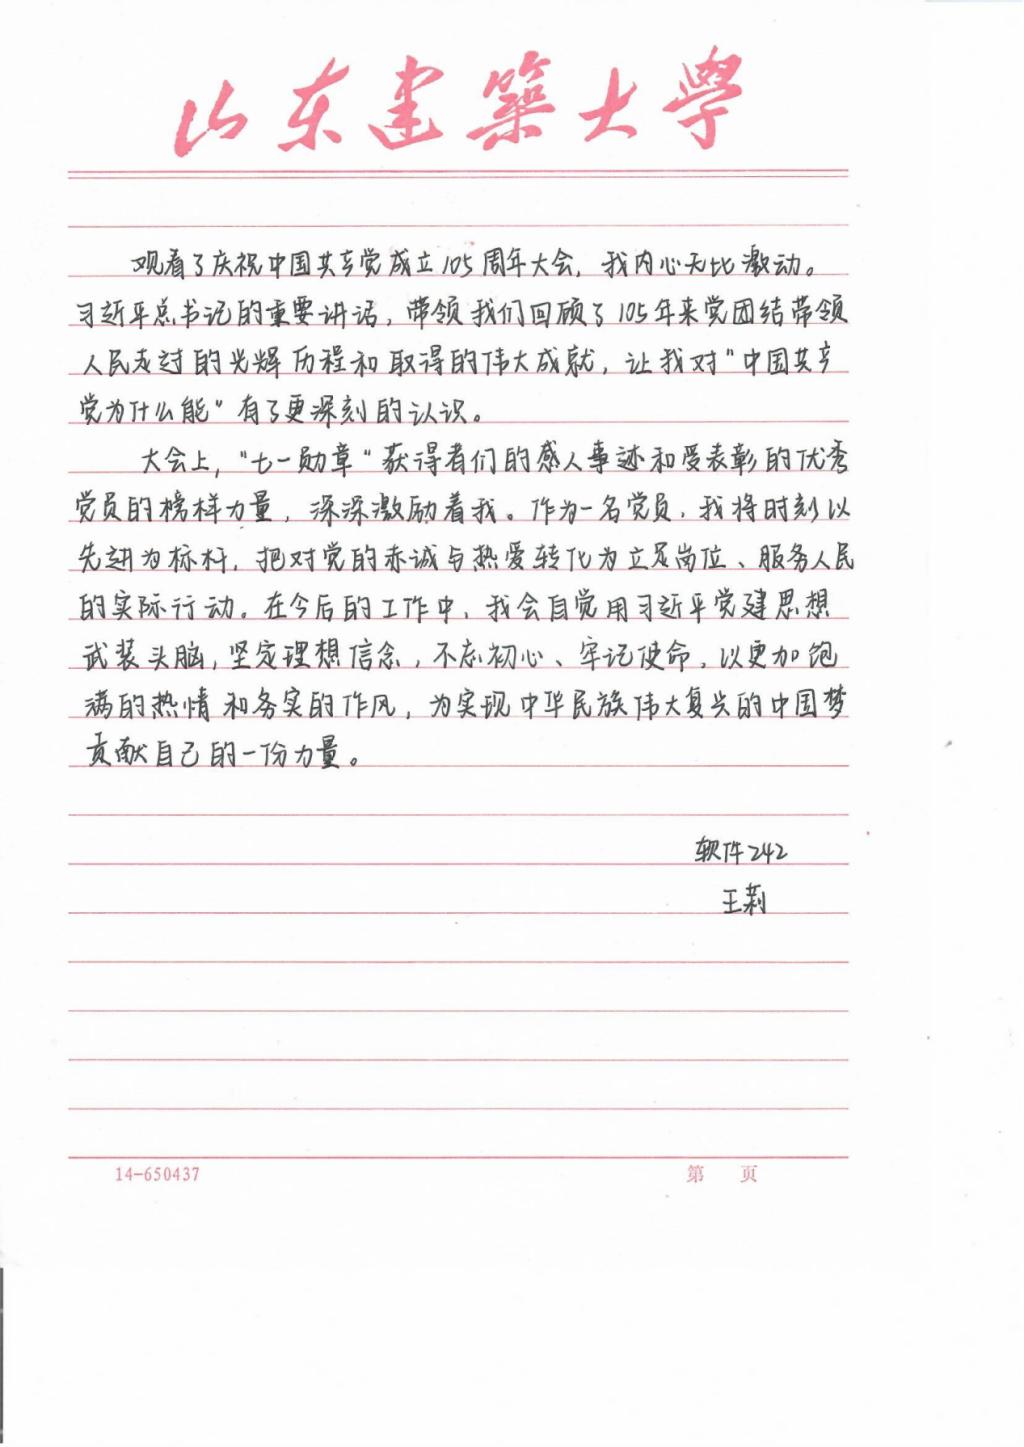 山东建築大學
观看了庆祝中国共产党成立105周年大会，我内心无比激动。
习近平总书记的重要讲话，带领我们回顾了105年来党团结带领
人民走过的光辉历程和取得的伟大成就，让我对“中国共产
党为什么能”有了更深刻的认识。
大会上，“七一勋章”获得者们的感人事迹和受表彰的优秀
党员的榜样力量，深深激励着我。作为一名党员，我将时刻以
先进为标杆，把对党的赤诚与热爱转化为立足岗位、服务人民
的实际行动。在今后的工作中，我会自觉用习近平党建思想
武装头脑，坚定理想信念，不忘初心、牢记使命，以更加饱
满的热情和务实的作风，为实现中华民族伟大复兴的中国梦
贡献自己的一份力量。
软件242
王莉
14-650437 第 页